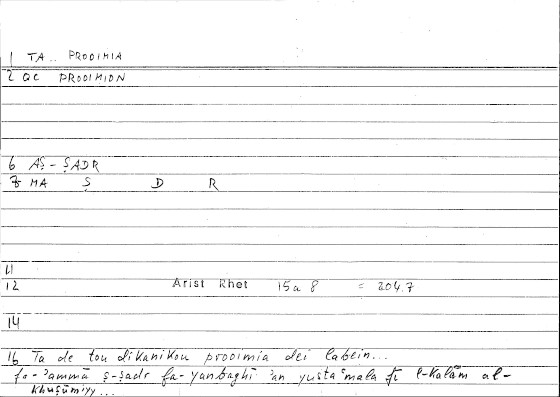 1 TA.. PROOIMIA
2 QC PROOIMION
6 AṢ-ṢADR
8 MA Ṣ D R
11
12 Arist Rhet 15a 8 = 204.7
14
16 Ta de tou dikanikou prooimia dei labein...
fa-'ammā ṣ-ṣadr fa-yanbaghī 'an yusta'mala fī l-kalām al-
khuṣūmiyy...